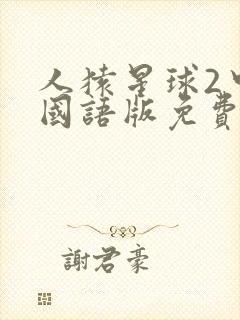 人猿星球2
國語版免費
謝君豪